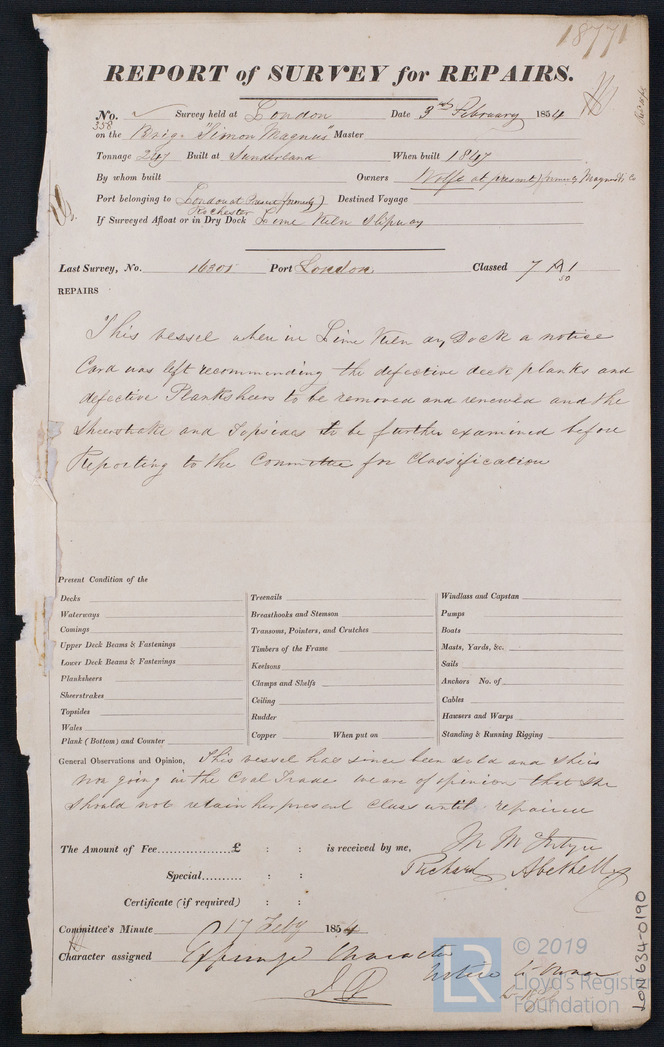 18771
REPORT of SURVEY for REPAIRS.
No. 358 Survey held at London Date 3rd February 1854
on the Brig "Simon Magnus" Master
Tonnage 247 Built at Sunderland When built 1847
By whom built Owners Wolfe at present) formerly Magnus & Co
Port belonging to London at Present formerly) Rochester Destined Voyage
If Surveyed Afloat or in Dry Dock Lime Kiln Slipway
Last Survey, No. 16301 Port London Classed 7 A1 50
REPAIRS
This vessel when in Lime Kiln Dock a notice
Card was left recommending the defective deck planks and
defective Planksheers to be removed and renewed and the
Sheerstrake and Topsides to be further examined before
Reporting to the Committee for Classification
Present Condition of the
Decks
Waterways
Comings
Upper Deck Beams & Fastenings
Lower Deck Beams & Fastenings
Planksheers
Sheerstrakes
Topsides
Wales
Plank (Bottom) and Counter
Treenails
Breasthooks and Stemson
Transoms, Pointers, and Crutches
Timbers of the Frame
Keelsons
Clamps and Shelfs
Ceiling
Rudder
Copper When put on
Windlass and Capstan
Pumps
Boats
Masts, Yards, &c.
Sails
Anchors No. of
Cables
Hawsers and Warps
Standing & Running Rigging
General Observations and Opinion, This vessel has since been sold and she is
now going in the Coal Trade we are of opinion that she
should not retain her present Class until repaired
The Amount of Fee.................£ : : is received by me,
Richard Abethell
Special.......... : :
Certificate (if required) : :
Committee's Minute 17 Feby 1854
Character assigned Expunge Character
Notice to Owner
LON 634-0190
LR © 2019
Lloyd's Register
Foundation